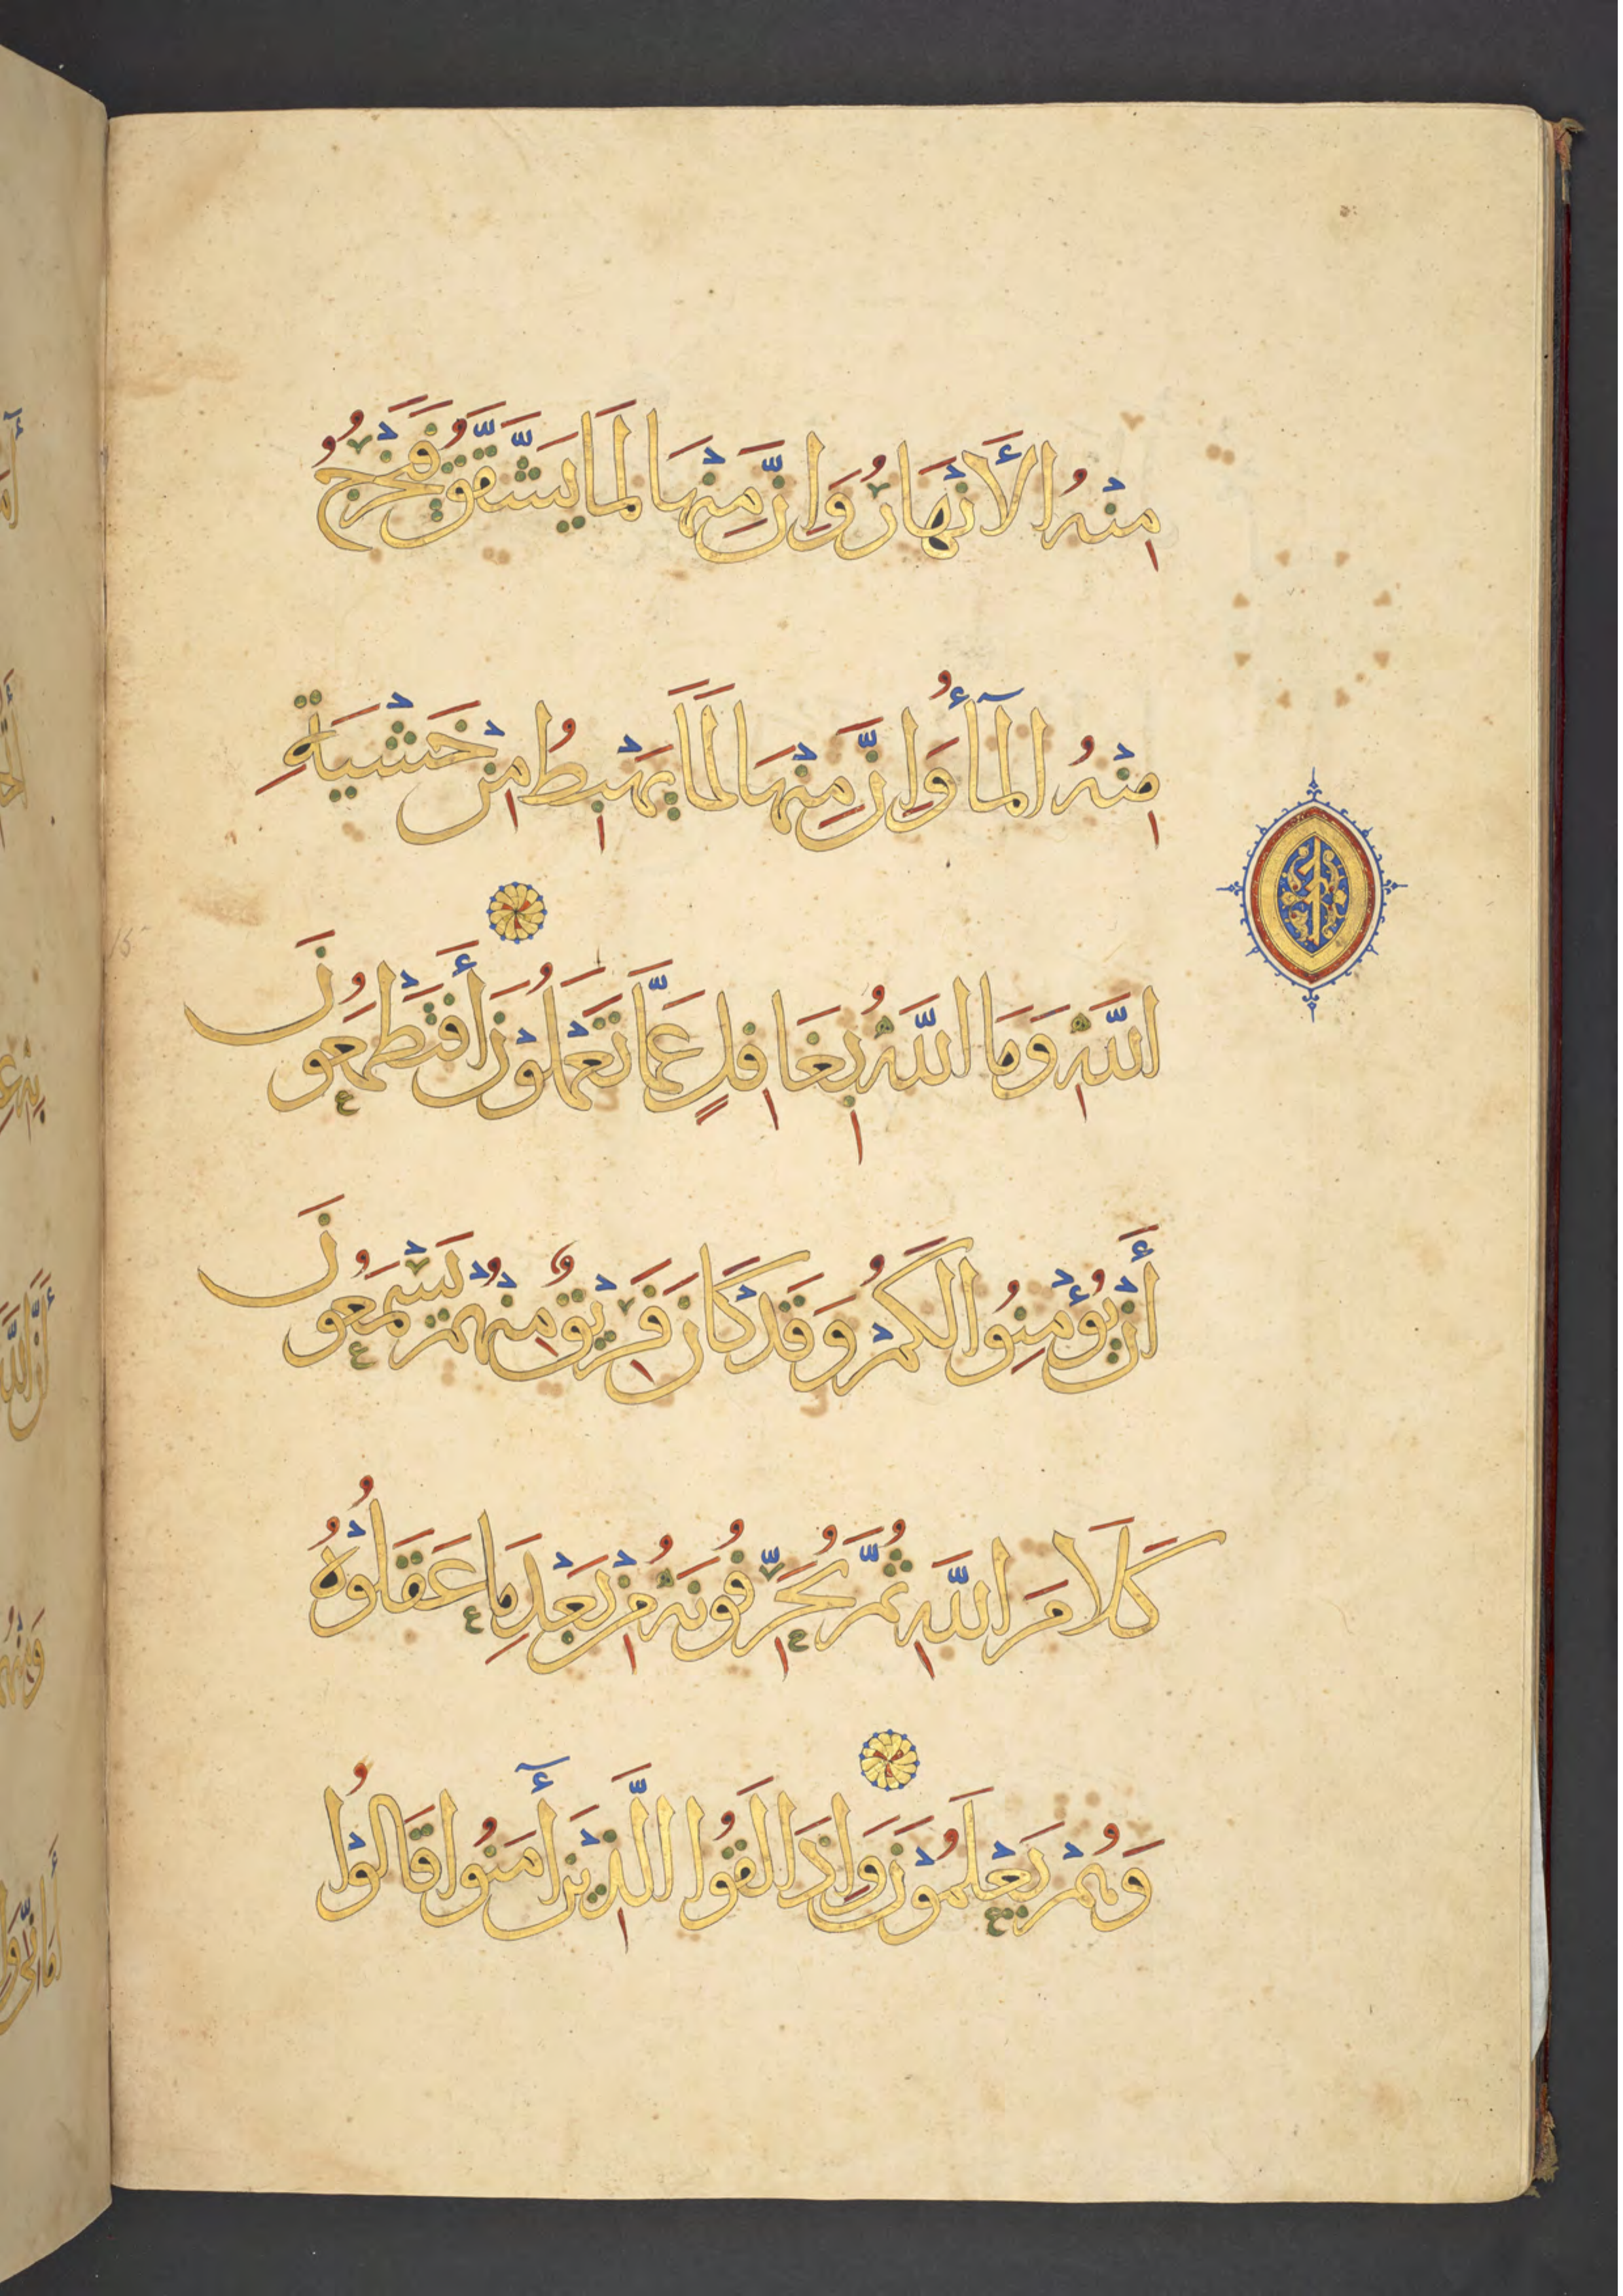 مِنْهُ الأَنْهَارُ وَإِنَّ مِنْهَا لَمَا يَشَّقَّقُ فَيَخْرُجُ
مِنْهُ الْمَآءُ وَإِنَّ مِنْهَا لَمَا يَهْبِطُ مِنْ خَشْيَةِ
اللَّهِ وَمَا اللَّهُ بِغَافِلٍ عَمَّا تَعْمَلُوْنَ أَفَتَطْمَعُونَ
أَنْ يُؤْمِنُوا لَكُمْ وَقَدْ كَانَ فَرِيْقٌ مِنْهُمْ يَسْمَعُونَ
كَلَامَ اللَّهِ ثُمَّ يُحَرِّفُونَهُ مِنْ بَعْدِ مَا عَقَلُوْهُ
وَهُمْ يَعْلَمُوْنَ وَإِذَا لَقُوا الَّذِيْنَ أٓمَنُوا قَالُوْا